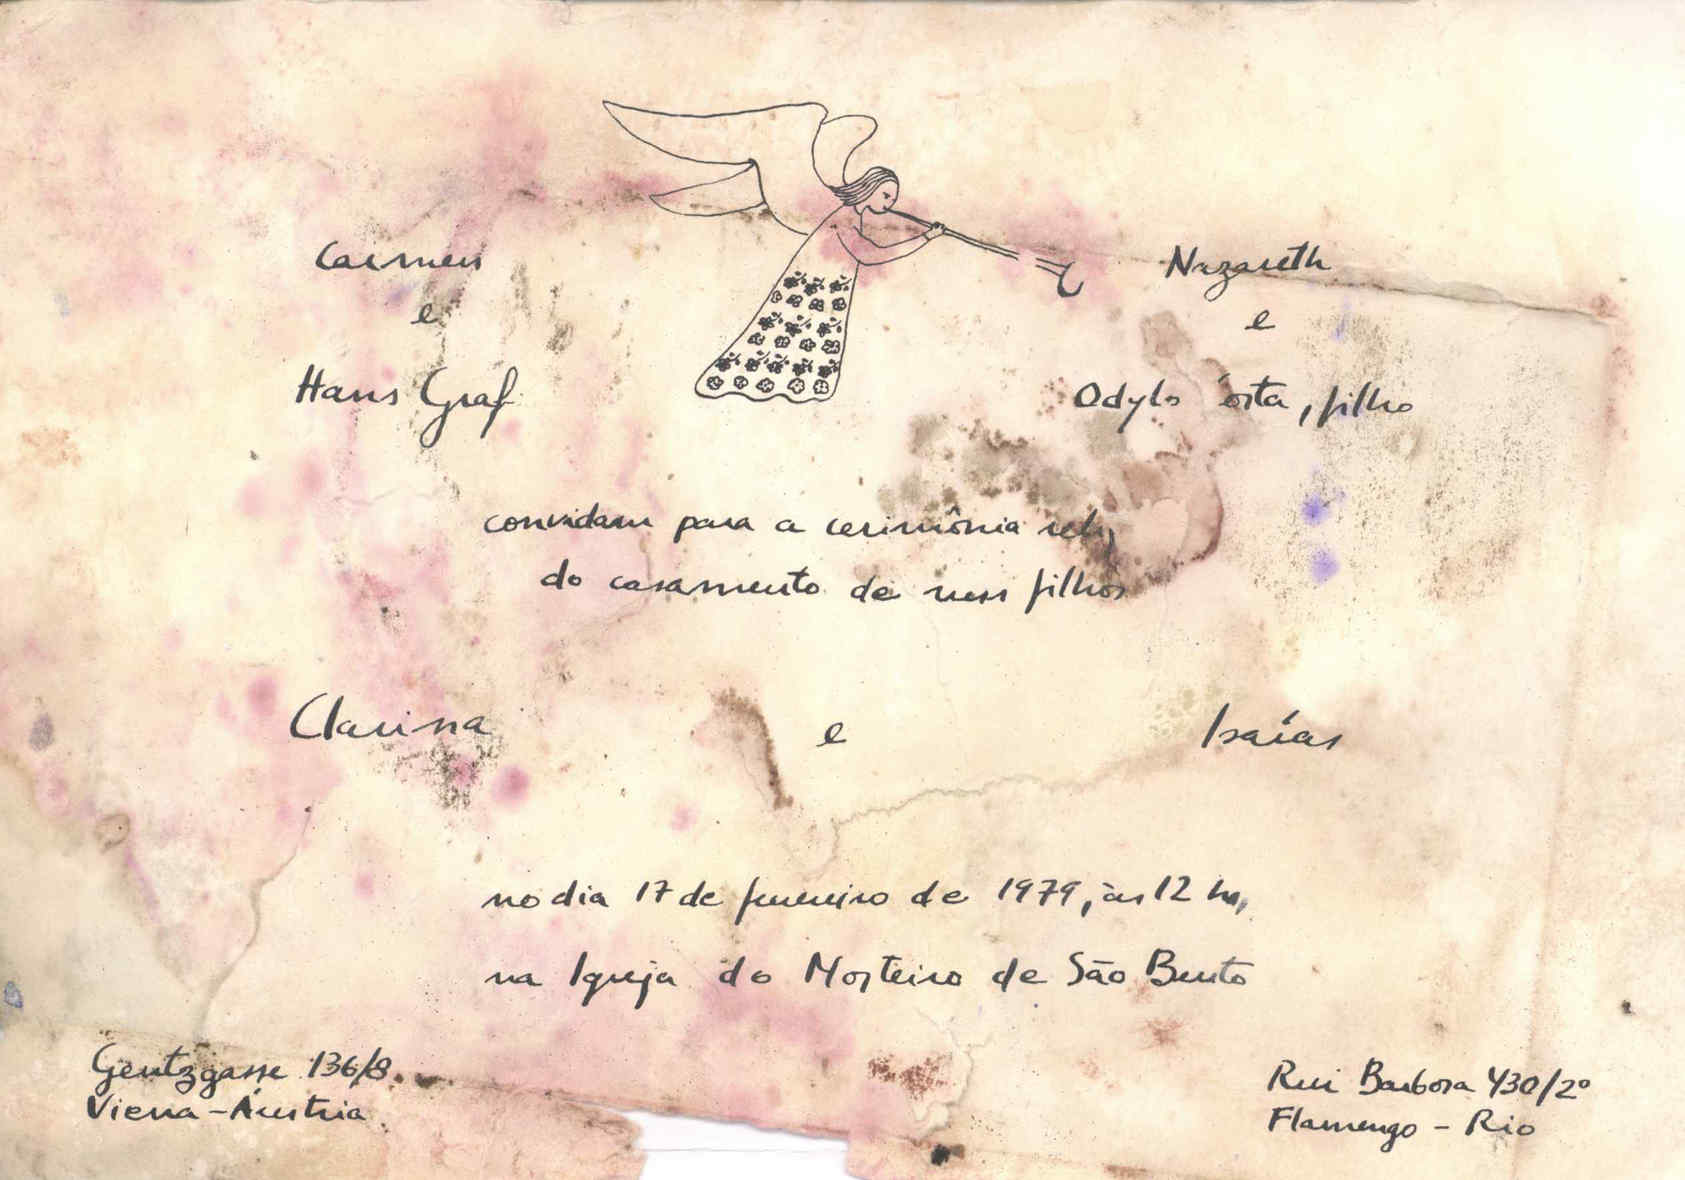 Carmen
e
Hans Graf
Nazareth
e
Odylo Costa, filho
convidam para a cerimônia relig
do casamento de seus filhos
Clarissa e Isaías
no dia 17 de fevereiro de 1979, às 12 hs,
na Igreja do Mosteiro de São Bento
Gentzgasse 136/8
Viena-Áustria
Rui Barbosa 430/2º
Flamengo - Rio